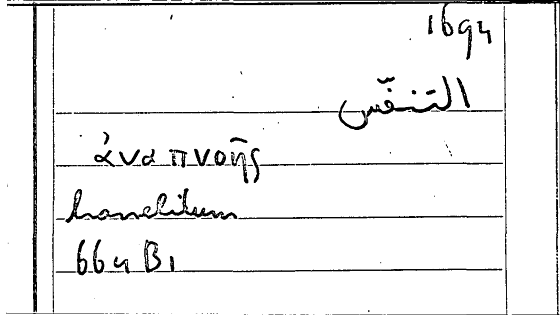 1694
التنفّس
ἀναπνοῆς
hanelitum
664 B1